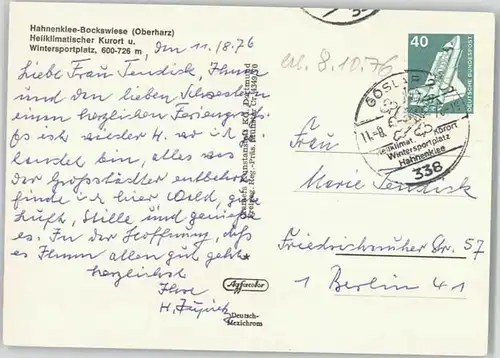 Hahnenklee-Bockswiese (Oberharz)
Heilklimatischer Kurort u.
Wintersportplatz, 600-726 m
den 11./8.76
Liebe Frau Tendick, Ihnen
und den lieben Schwestern
einen herzlichen Feriengruß.
Es ist wieder H. wo ich
gelandet bin, alles was
der Großstädter entbehrt
finde ich hier, Wald, gute
Luft, Stille und genieße
es. In der Hoffnung, daß
es Ihnen allen gut geht
herzlichst
Ihre
H.
Schöning Reg.-Präs.
Agfacolor
Deutsch-
Mexichrom
8.10.76
40
DEUTSCHE BUNDESPOST
GOSLAR
11.-8.
Heilklimat. Kurort
Wintersportplatz
Hahnenklee
338
Frau
Marie Tendick
Friedrichsruher Str. 57
1 Berlin 41